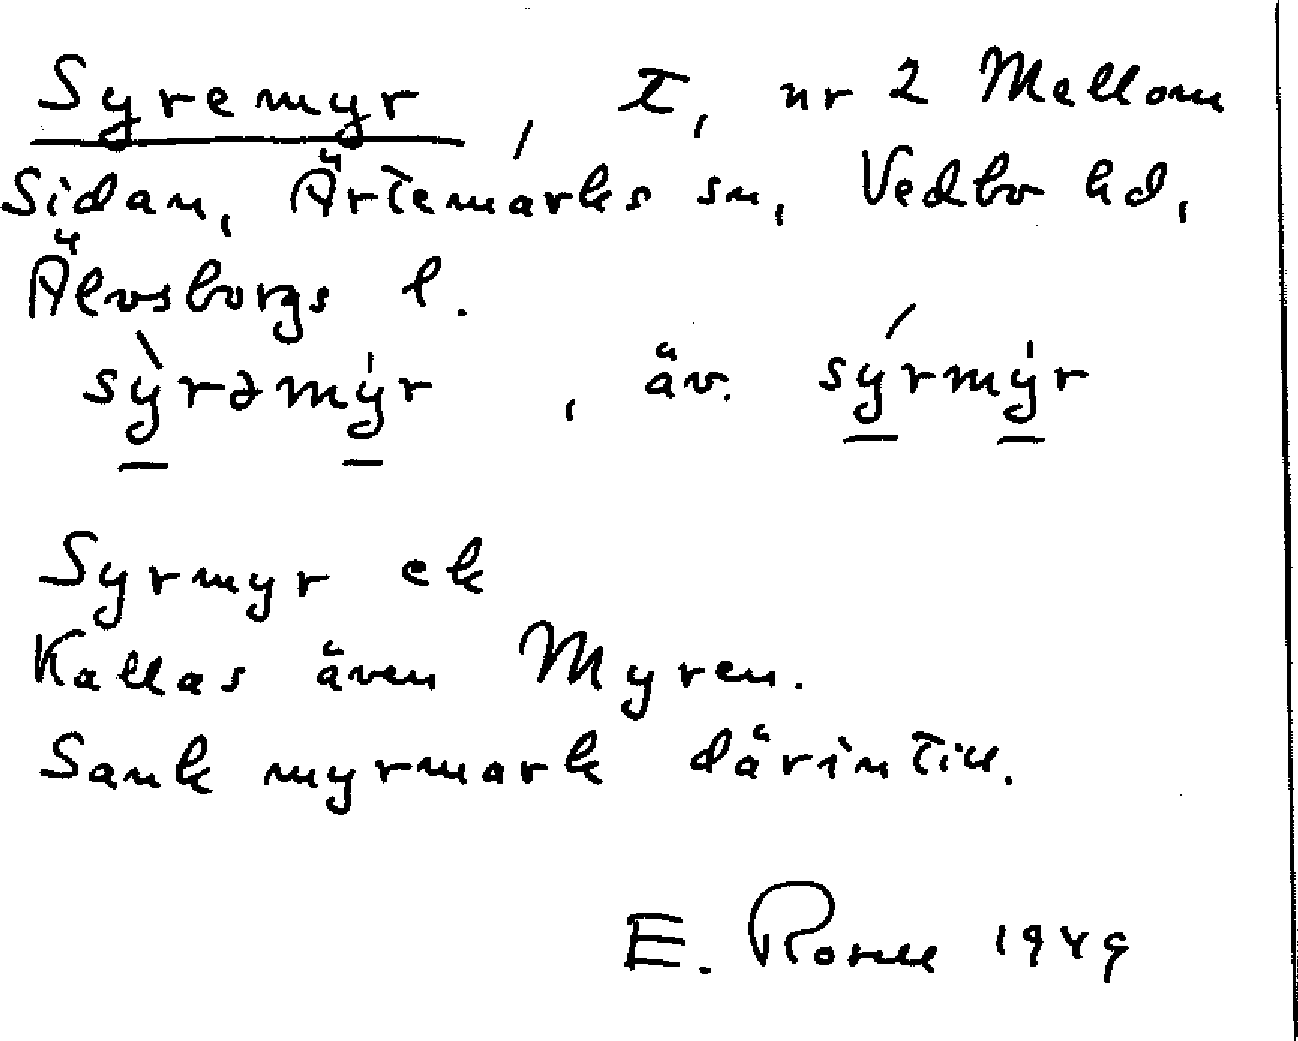 Syremyr, I, nr 2 Mellom
Sidan, Ärtemarks sn, Vedbo hd,
Älvsborgs l.
sỳrəmýr, äv. sýrmýr
Syrmyr ek
Kallas även Myren.
Sank myrmark därintill.
E. 1949